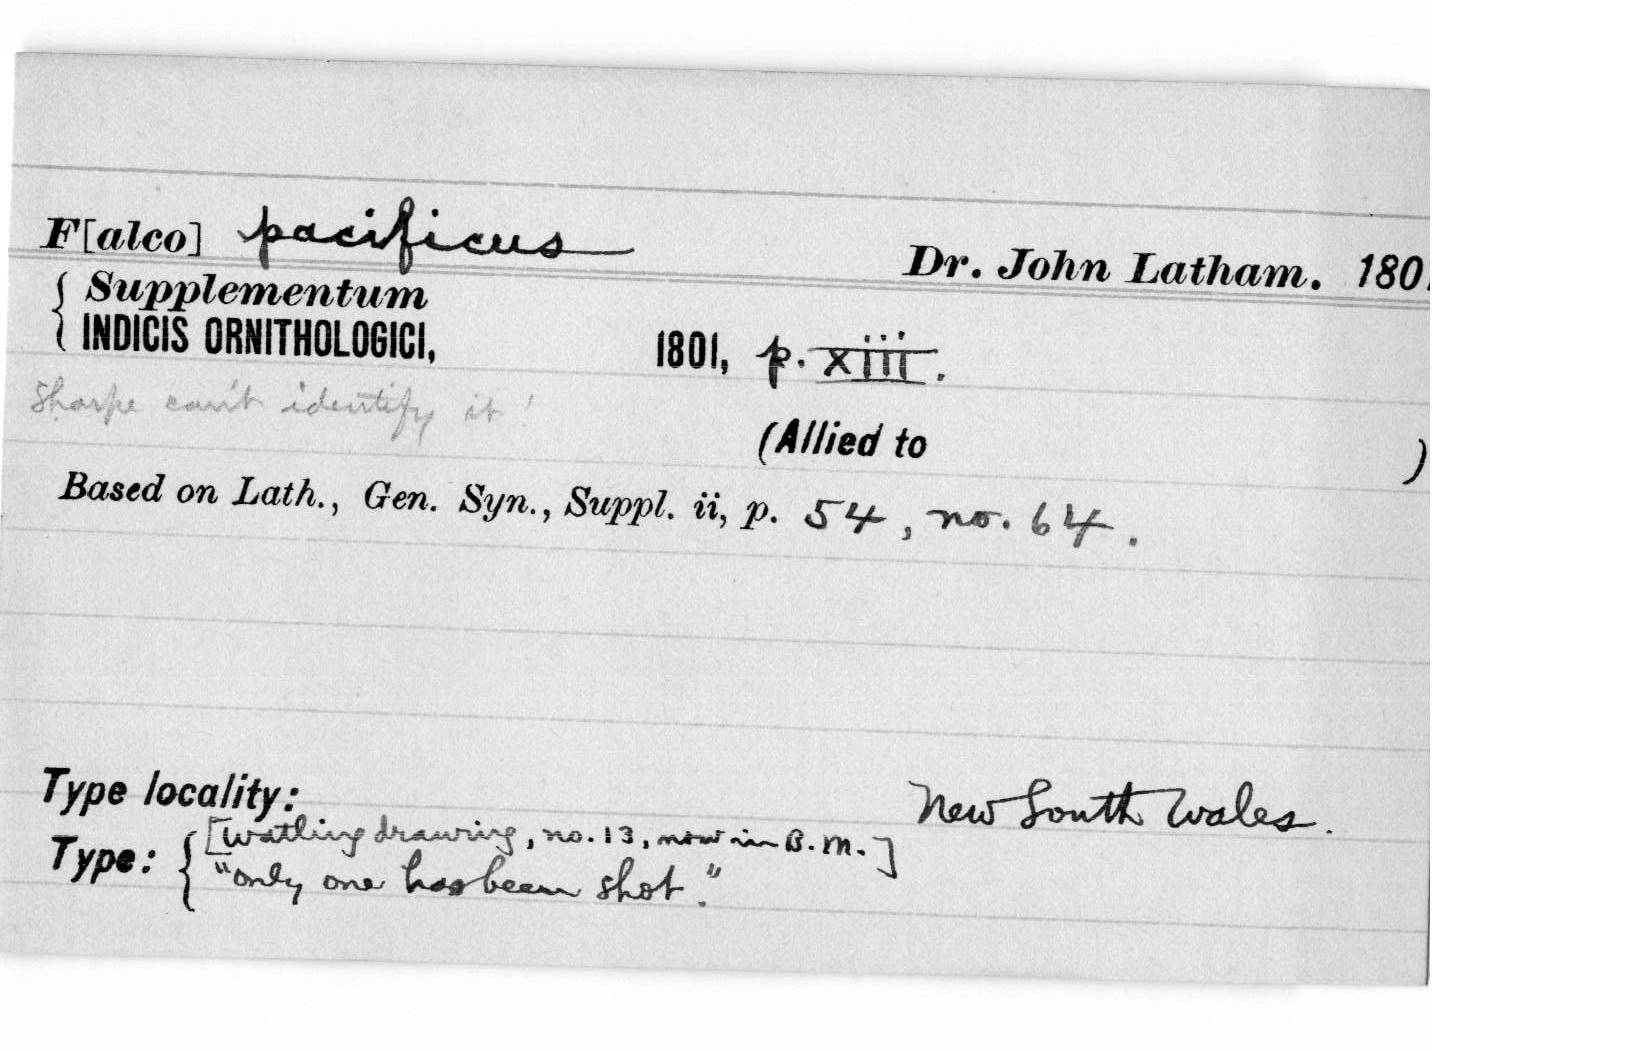 F[alco] pacificus
Dr. John Latham. 180
{ Supplementum
INDICIS ORNITHOLOGICI, 1801, p. xiii.
Sharpe can't identify it!
(Allied to )
Based on Lath., Gen. Syn., Suppl. ii, p. 54, no. 64.
Type locality: New South Wales.
Type: { [Watling drawing, no. 13, now in B.M.]
"only one has been shot."